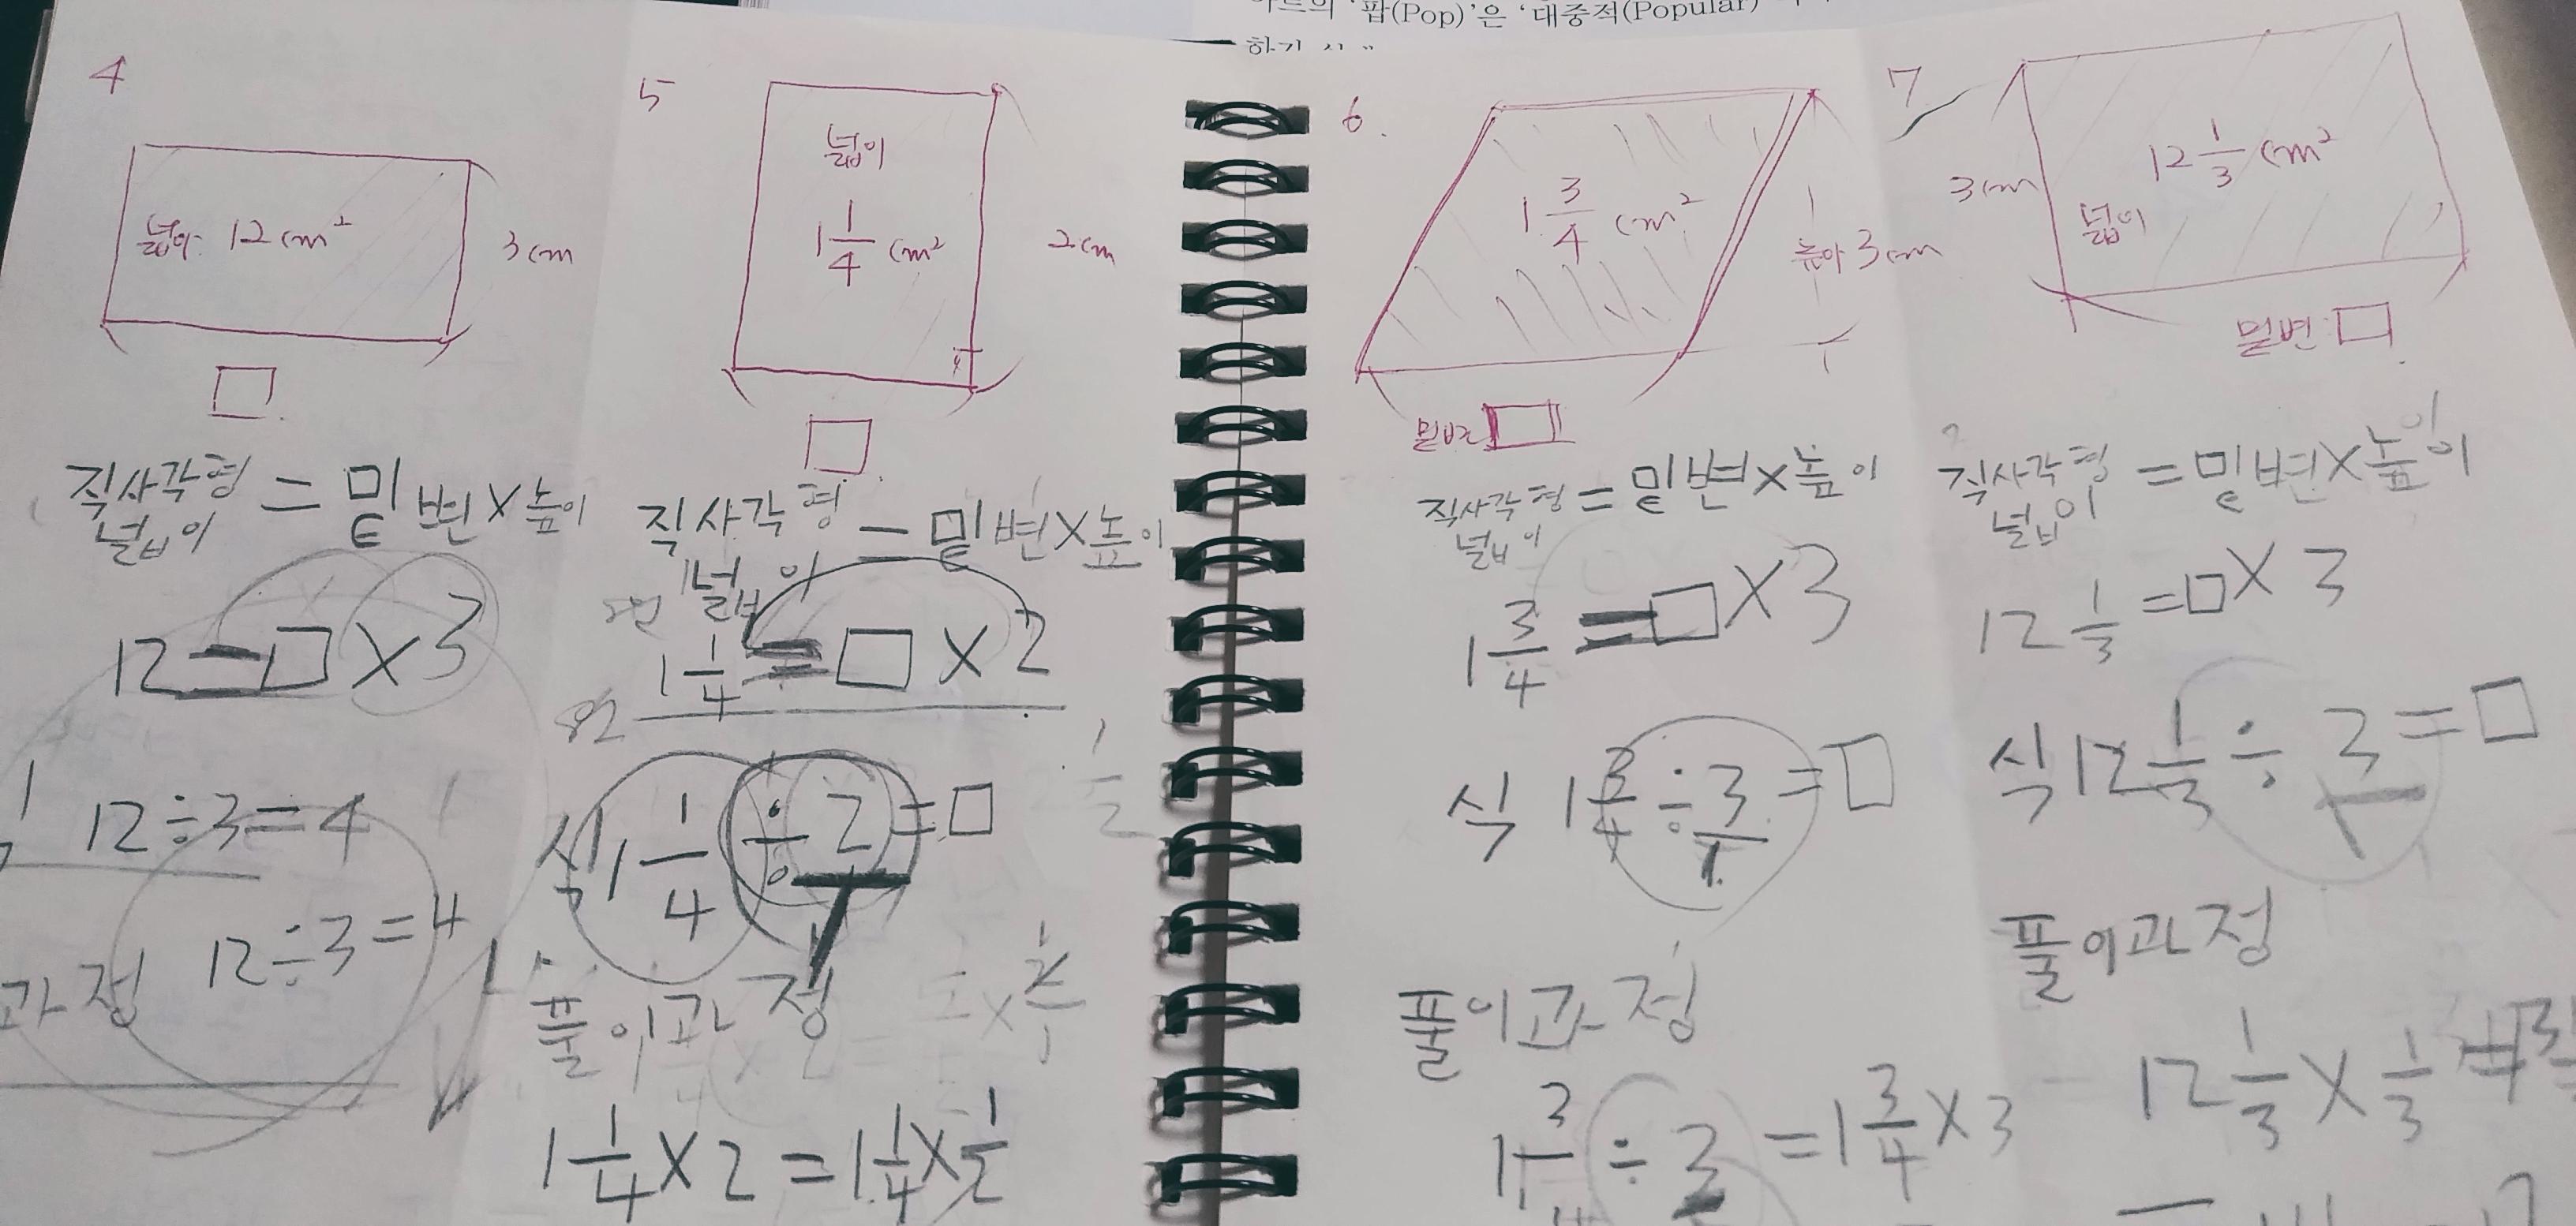 아트의 '팝(Pop)'은 '대중적(Popular)
하기
4
넓이 12cm²
3cm
□
직사각형 넓이 = 밑변×높이
12=□×3
12÷3=4
과정 12÷3=4
5
넓이
1 1/4 cm²
2cm
□
직사각형 넓이 = 밑변×높이
1 1/4 = □×2
식 1 1/4 ÷ 2/1 = □
풀이과정
1 1/4 × 2 = 1 1/4 × 1/2
6.
1 3/4 cm²
높이 3cm
밑변 □
직사각형 넓이 = 밑변×높이
1 3/4 = □×3
식 1 3/4 ÷ 3/1 = □
풀이과정
1 3/4 ÷ 3 = 1 3/4 × 3
7
12 1/3 cm²
3cm
넓이
밑변 □
직사각형 넓이 = 밑변×높이
12 1/3 = □×3
식 12 1/3 ÷ 3/1 = □
풀이과정
12 1/3 × 1/3